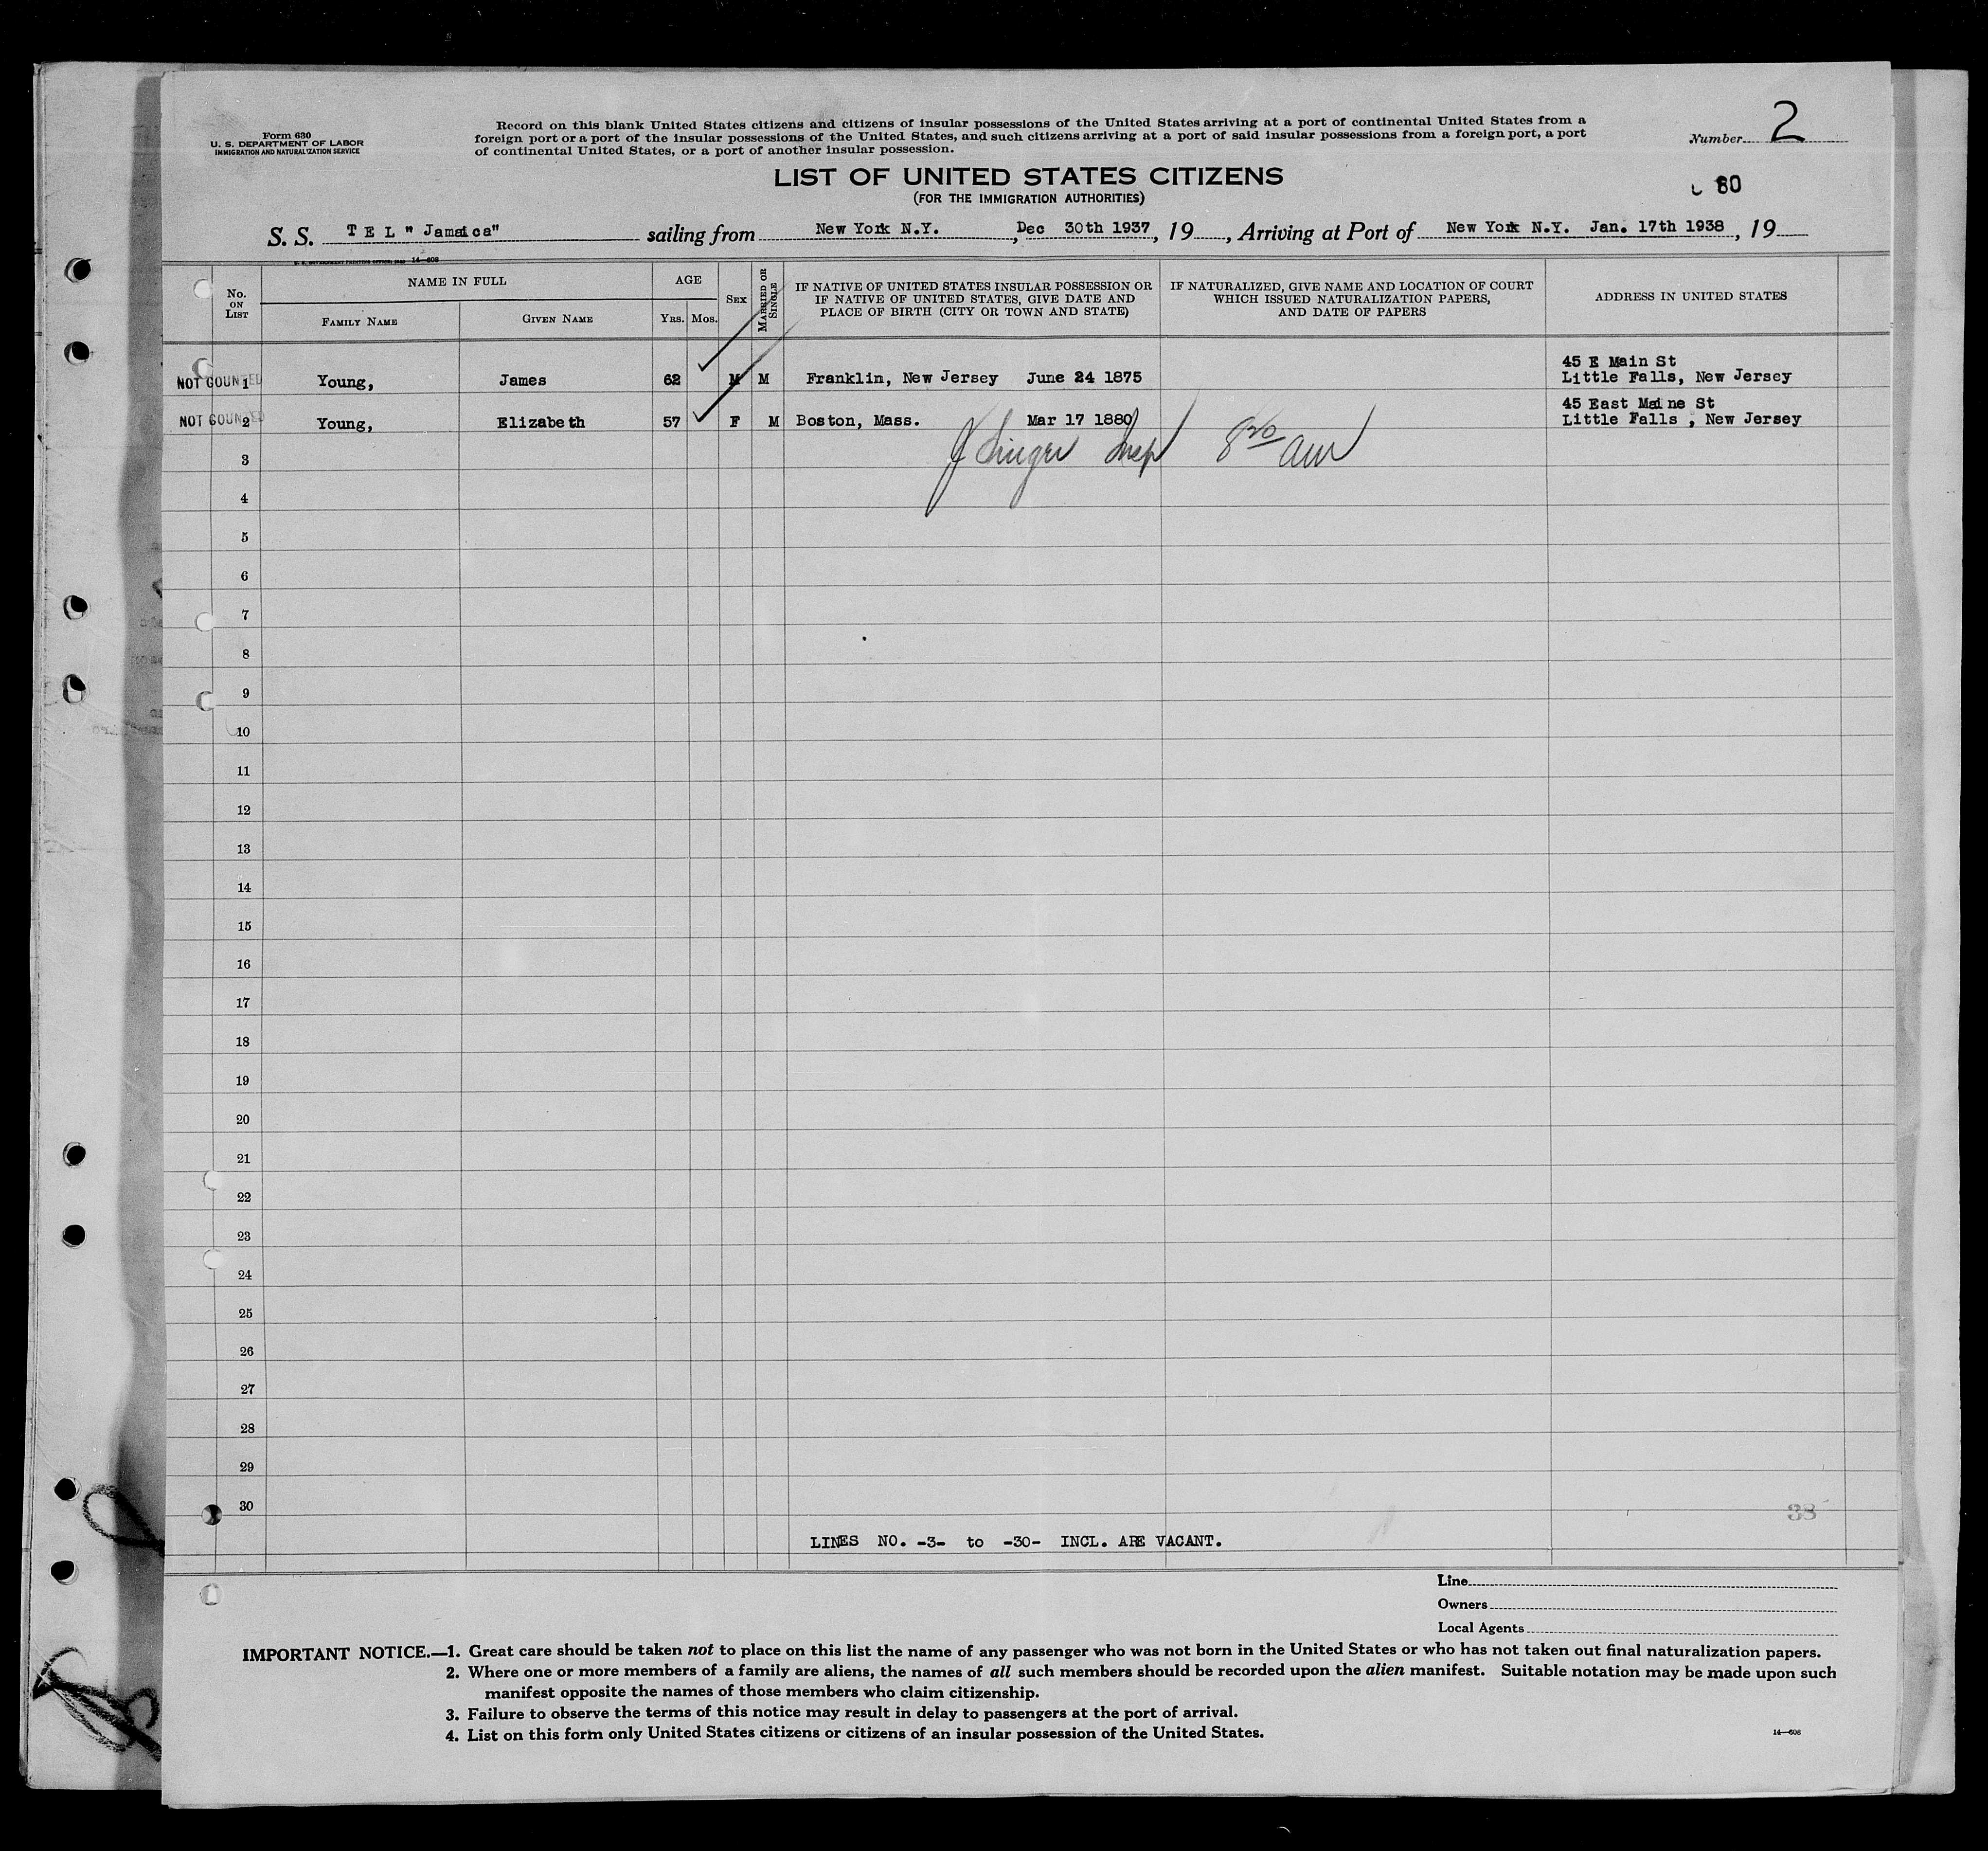 Form 630
U. S. DEPARTMENT OF LABOR
IMMIGRATION AND NATURALIZATION SERVICE
Record on this blank United States citizens and citizens of insular possessions of the United States arriving at a port of continental United States from a
foreign port or a port of the insular possessions of the United States, and such citizens arriving at a port of said insular possessions from a foreign port, a port
of continental United States, or a port of another insular possession.
Number 2
LIST OF UNITED STATES CITIZENS
(FOR THE IMMIGRATION AUTHORITIES)
60
S. S. T E L " Jamaica" sailing from New York N.Y. , Dec 30th 1937, 19 , Arriving at Port of New York N.Y. Jan. 17th 1938 , 19
14—608
No. ON LIST
NAME IN FULL
FAMILY NAME
GIVEN NAME
AGE
YRS. MOS.
SEX
MARRIED OR SINGLE
IF NATIVE OF UNITED STATES INSULAR POSSESSION OR
IF NATIVE OF UNITED STATES, GIVE DATE AND
PLACE OF BIRTH (CITY OR TOWN AND STATE)
IF NATURALIZED, GIVE NAME AND LOCATION OF COURT
WHICH ISSUED NATURALIZATION PAPERS,
AND DATE OF PAPERS
ADDRESS IN UNITED STATES
45 E Main St
NOT COUNTED 1 Young, James 62 M M Franklin, New Jersey June 24 1875 Little Falls, New Jersey
45 East Maine St
NOT COUNTED 2 Young, Elizabeth 57 F M Boston, Mass. Mar 17 1880 Little Falls , New Jersey
3
4
5
6
7
8
9
10
11
12
13
14
15
16
17
18
19
20
21
22
23
24
25
26
27
28
29
30
38
LINES NO. -3- to -30- INCL. ARE VACANT.
Line
Owners
Local Agents
IMPORTANT NOTICE.—1. Great care should be taken not to place on this list the name of any passenger who was not born in the United States or who has not taken out final naturalization papers.
2. Where one or more members of a family are aliens, the names of all such members should be recorded upon the alien manifest. Suitable notation may be made upon such
manifest opposite the names of those members who claim citizenship.
3. Failure to observe the terms of this notice may result in delay to passengers at the port of arrival.
4. List on this form only United States citizens or citizens of an insular possession of the United States.
14—608